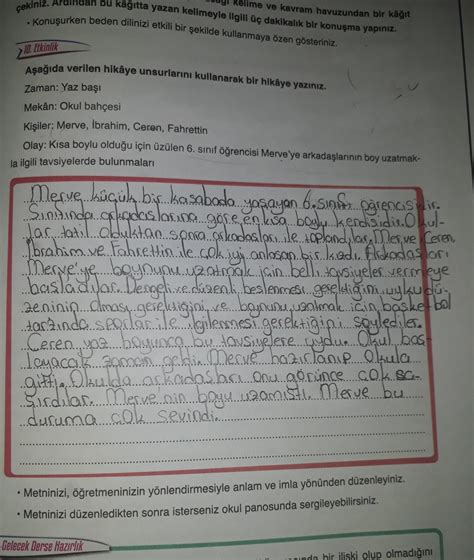 çekiniz. Ardından bu kâğıtta yazan kelimeyle ilgili üç dakikalık bir konuşma yapınız.
kelime ve kavram havuzundan bir kâğıt
• Konuşurken beden dilinizi etkili bir şekilde kullanmaya özen gösteriniz.
10. Etkinlik
Aşağıda verilen hikâye unsurlarını kullanarak bir hikâye yazınız.
Zaman: Yaz başı
Mekân: Okul bahçesi
Kişiler: Merve, İbrahim, Ceren, Fahrettin
Olay: Kısa boylu olduğu için üzülen 6. sınıf öğrencisi Merve'ye arkadaşlarının boy uzatmak-
la ilgili tavsiyelerde bulunmaları
Merve küçük bir kasabada yaşayan 6. sınıf öğrencisidir.
Sınıfında arkadaşlarına göre en kısa boylu kendisidir. Okul-
lar tatil olduktan sonra arkadaşları ile toplandılar. Merve Ceren,
İbrahim ve Fahrettin ile çok iyi anlaşan bir kadı. Arkadaşları
Merve'ye boynunu uzatmak için belli tavsiyeler vermeye
başladılar. Dengeli ve düzenli beslenmesi gerektiğini, uyku dü-
zeninin olması gerektiğini ve boynunu uzatmak için basketbol
tarzında sporlar ile ilgilenmesi gerektiğini söylediler.
Ceren yaz boyunca bu tavsiyelere uydu. Okul baş-
layacak zaman geldi. Merve hazırlanıp okula
gitti. Okulda arkadaşları onu görünce çok şa-
şırdılar. Merve'nin boyu uzamıştı. Merve bu
duruma çok sevindi.
• Metninizi, öğretmeninizin yönlendirmesiyle anlam ve imla yönünden düzenleyiniz.
• Metninizi düzenledikten sonra isterseniz okul panosunda sergileyebilirsiniz.
Gelecek Derse Hazırlık
bir ilişki olup olmadığını